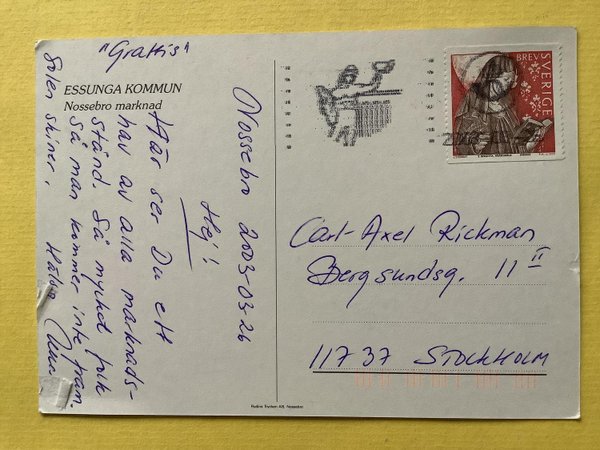 "Grattis"
ESSUNGA KOMMUN
Nossebro marknad
Nossebro 2003-03-26
Hej!
Här ser Du ett
hav av alla marknads-
stånd. Så mycket folk
så man kommer inte fram.
Solen skiner.
Hälsn
BREV
SVERIGE
Carl-Axel Rickman
Bergsundsg. 11 II
117 37 STOCKHOLM